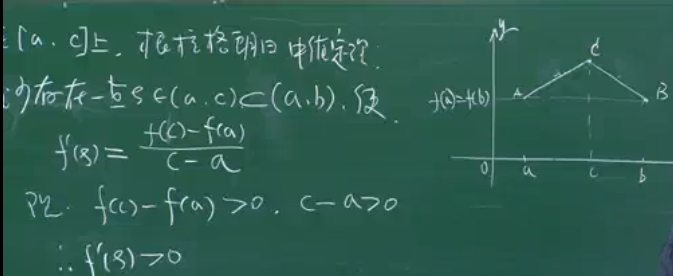 [a, c]上, 根据拉格朗日中值定理
存在一点 ξ∈(a,c)⊂(a,b), 使
f'(ξ) = \frac{f(c)-f(a)}{c-a}
f(c)-f(a)>0, c-a>0
∴ f'(ξ)>0
y
C
f(a)=f(b) A B
0 a c b